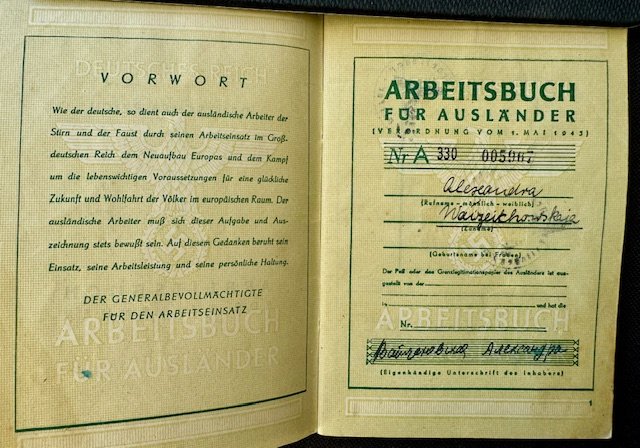 DEUTSCHES REICH
VORWORT
Wie der deutsche, so dient auch der ausländische Arbeiter der
Stirn und der Faust durch seinen Arbeitseinsatz im Groß-
deutschen Reich dem Neuaufbau Europas und dem Kampf
um die lebenswichtigen Voraussetzungen für eine glückliche
Zukunft und Wohlfahrt der Völker im europäischen Raum. Der
ausländische Arbeiter muß sich dieser Aufgabe und Aus-
zeichnung stets bewußt sein. Auf diesem Gedanken beruht sein
Einsatz, seine Arbeitsleistung und seine persönliche Haltung.
DER GENERALBEVOLLMÄCHTIGTE
FÜR DEN ARBEITSEINSATZ
ARBEITSBUCH
FÜR AUSLÄNDER
ARBEITSBUCH
FÜR AUSLÄNDER
(VERORDNUNG VOM 1. MAI 1943)
Nr A 330 005907
Alexandra
(Rufname - männlich - weiblich)
(Zuname)
(Geburtsname bei Frauen)
Der Paß oder das Grenzlegitimationspapier des Ausländers ist aus-
gestellt von der
in und hat die
ARBEITSBUCH
Nr.
Александра
(Eigenhändige Unterschrift des Inhabers)
1